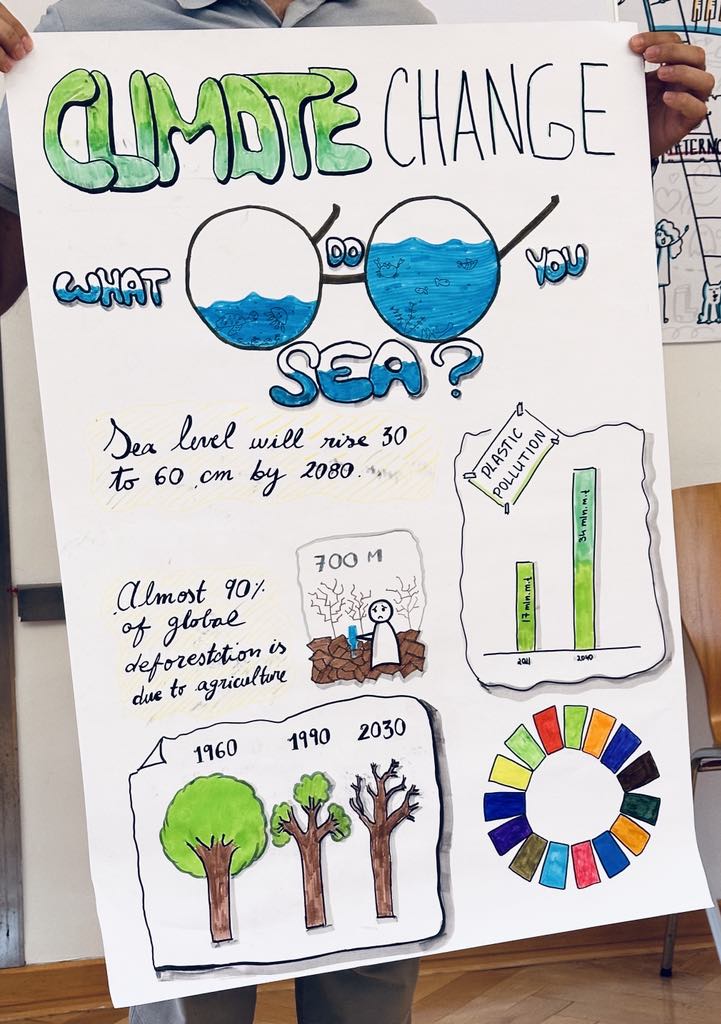 CLIMATE CHANGE
WHAT DO YOU
SEA?
Sea level will rise 30
to 60 cm by 2080.
PLASTIC
POLLUTION
17 mln.m.t
34 mln.m.t
2021 2040
700 M
Almost 90%
of global
deforestation is
due to agriculture
1960 1990 2030